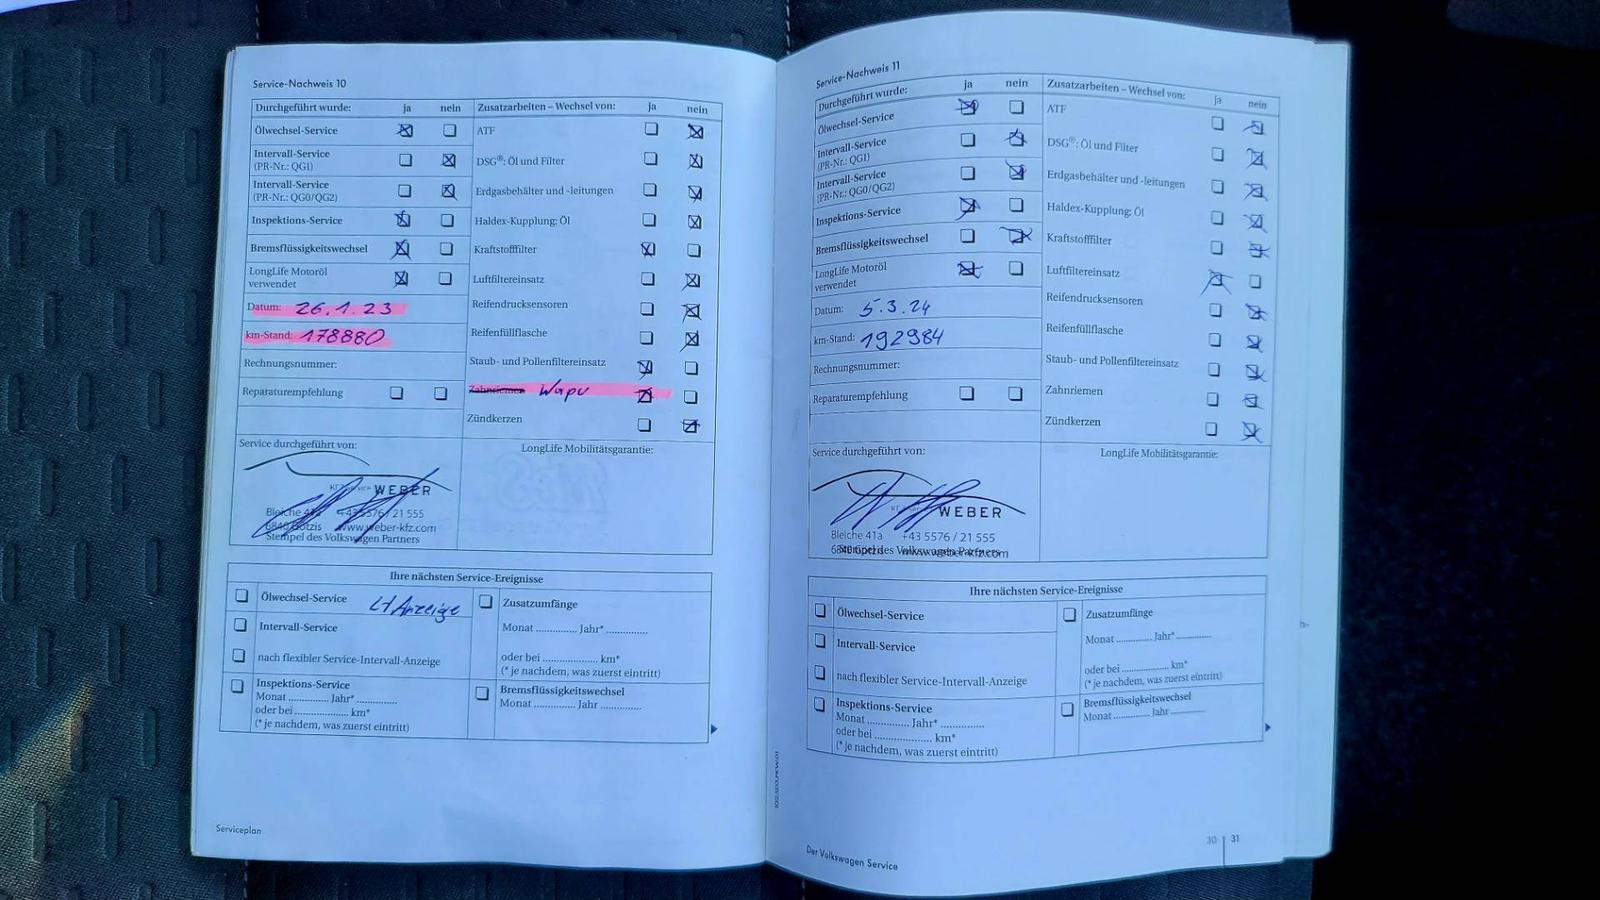 Service-Nachweis 10
Durchgeführt wurde: ja nein
Ölwechsel-Service
Intervall-Service
(PR-Nr.: QG1)
Intervall-Service
(PR-Nr.: QG0/QG2)
Inspektions-Service
Bremsflüssigkeitswechsel
LongLife Motoröl
verwendet
Datum: 26.1.23
km-Stand: 178880
Rechnungsnummer:
Reparaturempfehlung
Zusatzarbeiten – Wechsel von: ja nein
ATF
DSG®: Öl und Filter
Erdgasbehälter und -leitungen
Haldex-Kupplung: Öl
Kraftstofffilter
Luftfiltereinsatz
Reifendrucksensoren
Reifenfüllflasche
Staub- und Pollenfiltereinsatz
Zahnriemen Wapu
Zündkerzen
Service durchgeführt von:
WEBER
Bleiche 41a +43 5576 / 21 555
6840 Götzis www.weber-kfz.com
Stempel des Volkswagen Partners
LongLife Mobilitätsgarantie:
Ihre nächsten Service-Ereignisse
Ölwechsel-Service Lt Anzeige
Intervall-Service
nach flexibler Service-Intervall-Anzeige
Inspektions-Service
Monat ............ Jahr* ............
oder bei .................... km*
(* je nachdem, was zuerst eintritt)
Zusatzumfänge
Monat ............ Jahr* ............
oder bei .................... km*
(* je nachdem, was zuerst eintritt)
Bremsflüssigkeitswechsel
Monat ............ Jahr ............
Serviceplan
Service-Nachweis 11
Durchgeführt wurde: ja nein
Ölwechsel-Service
Intervall-Service
(PR-Nr.: QG1)
Intervall-Service
(PR-Nr.: QG0/QG2)
Inspektions-Service
Bremsflüssigkeitswechsel
LongLife Motoröl
verwendet
Datum: 5.3.24
km-Stand: 192984
Rechnungsnummer:
Reparaturempfehlung
Zusatzarbeiten – Wechsel von: ja nein
ATF
DSG®: Öl und Filter
Erdgasbehälter und -leitungen
Haldex-Kupplung: Öl
Kraftstofffilter
Luftfiltereinsatz
Reifendrucksensoren
Reifenfüllflasche
Staub- und Pollenfiltereinsatz
Zahnriemen
Zündkerzen
Service durchgeführt von:
WEBER
Bleiche 41a +43 5576 / 21 555
6840 Götzis www.weber-kfz.com
Stempel des Volkswagen Partners
LongLife Mobilitätsgarantie:
Ihre nächsten Service-Ereignisse
Ölwechsel-Service
Intervall-Service
nach flexibler Service-Intervall-Anzeige
Inspektions-Service
Monat ............ Jahr* ............
oder bei .................... km*
(* je nachdem, was zuerst eintritt)
Zusatzumfänge
Monat ............ Jahr* ............
oder bei .................... km*
(* je nachdem, was zuerst eintritt)
Bremsflüssigkeitswechsel
Monat ............ Jahr ............
Der Volkswagen Service
30 31